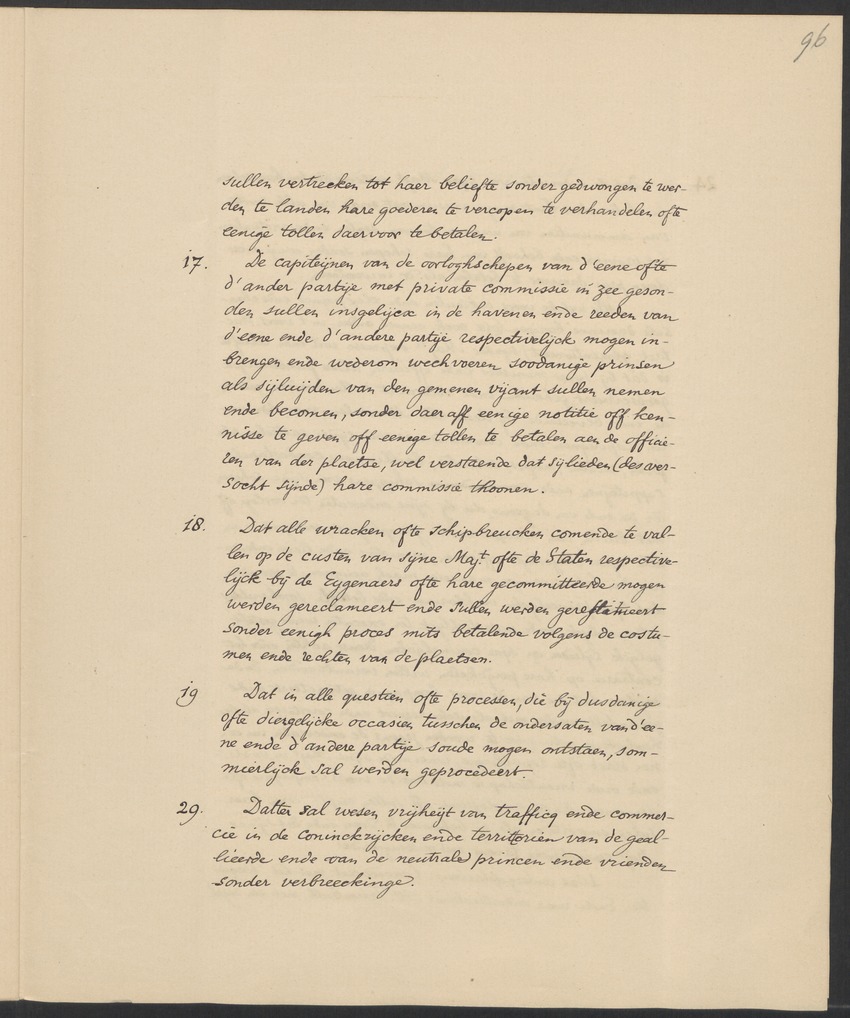 96
sullen vertrecken tot haer beliefte sonder gedwongen te wer-
den te landen hare goederen te vercopen te verhandelen ofte
eenige tollen daervoor te betalen.
17. De capiteijnen van de oorloghschepen van d'eene ofte
d'ander partije met private commissie in zee geson-
den sullen insgelijcx in de havenen ende reeden van
d'eene ende d'andere partije respectivelijck mogen in-
brengen ende wederom wechvoeren soodanige prinsen
als sijluijden van den gemenen vijant sullen nemen
ende becomen, sonder daeraff eenige notitie off ken-
nisse te geven off eenege tollen te betalen aen de officie-
ren van der plaetse, wel verstaende dat sijlieden (des ver-
socht sijnde) hare commissie thoonen.
18. Dat alle wracken ofte schipbreucken comende te val-
len op de custen van sijne Majt. ofte de Staten respective-
lijck bij de Eygenaers ofte hare gecommitteerde mogen
werden gereclameert ende sullen werden gerestitueert
sonder eenigh proces mits betalende volgens de costu-
men ende rechten van de plaetsen.
19 Dat in alle questien ofte processen, die bij dusdanige
ofte diergelijcke occasien tusschen de ondersaten van d'ee-
ne ende d'andere partije soude mogen ontstaen, som-
mierlijck sal werden geprocedeert.
29. Datter sal wesen vrijheijt van trafficq ende commer-
cie in de coninckrijcken ende territorien van de geal-
lieerde ende van de neutrale princen ende vrienden
sonder verbreeckinge.